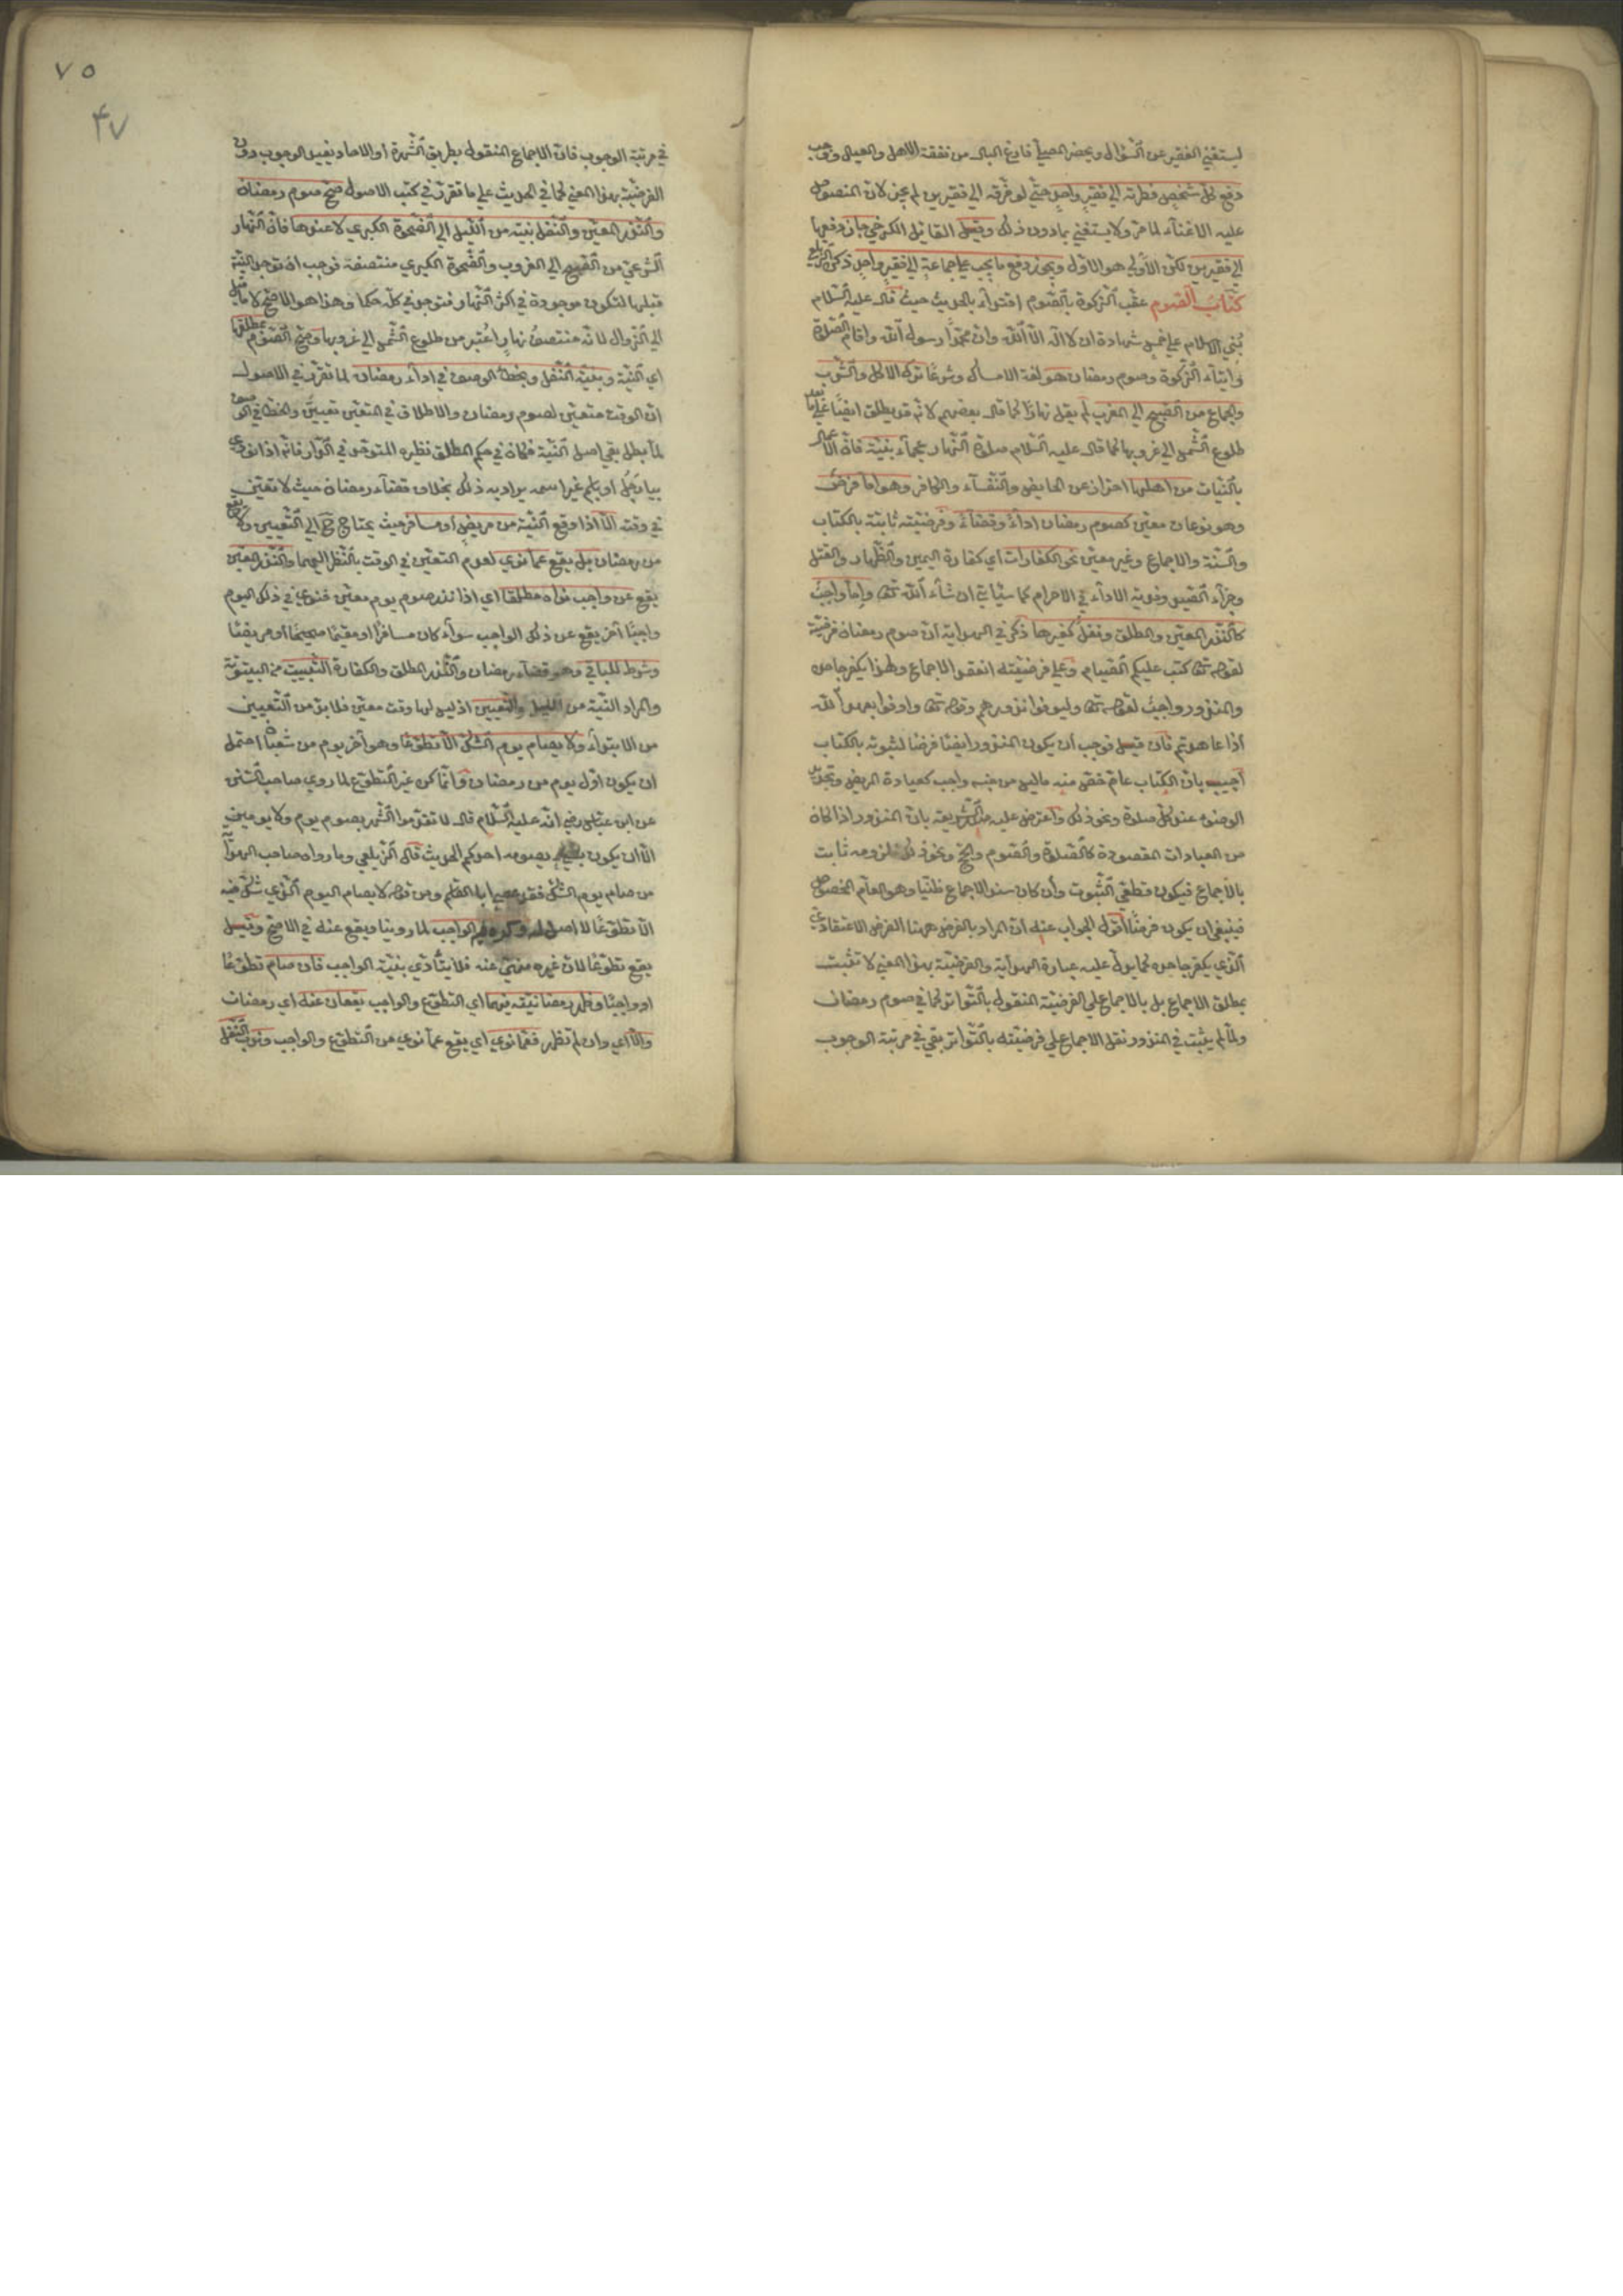 ليستغني الفقير عن السؤال ويحضر المصلي فارغ البال من نفقة الاهل والعيال ووجب
دفع كل شخص فطرته الي فقير واحد حتي لو فرقه الي فقيرين لم يجز لان المنصوص
عليه الاغناء لما مر ولا يستغني بما دون ذلك وقيل القائل الكرخي جاز دفعها
الي فقيرين لكن الاولي هو الاول ويجوز دفع ما يجب علي جماعة الي فقير واحد ذكره الزيلعي
كتاب الصوم عقب الزكوة بالصوم اقتداء بالحديث حيث قال عليه السلام
بني الاسلام علي خمس شهادة ان لا اله الا الله وان محمدا رسول الله واقام الصلوة
وايتاء الزكوة وصوم رمضان هو لغة الامساك وشرعا ترك الاكل والشرب
والجماع من الصبح الي المغرب لم يقل نهارا كما قال بعضهم لانه قد يطلق ايضا علي ما بعد
طلوع الشمس الي غروبها كما قال عليه السلام صلوة النهار عجماء بنية فان الاعمال
بالنيات من اهلها احتراز عن الحايض والنفساء والكافر وهو اما فرض
وهو نوعان معين كصوم رمضان اداء وقضاء وفرضيته ثابتة بالكتاب
والسنة والاجماع وغير معين نحو الكفارات اي كفارة اليمين والظهار والقتل
وجزاء الصيد وفدية الاداء في الاحرام كما سيأتي ان شاء الله تعالى واما واجب
كالنذر المعين والمطلق ونفل كغيرها ذكر في الهداية ان صوم رمضان فريضة
لقوله تعالى كتب عليكم الصيام وعلي فرضيته انعقد الاجماع ولهذا يكفر جاحده
والمنذور واجب لقوله تعالى وليوفوا نذورهم وقوله تعالى واوفوا بعهد الله
اذا عاهدتم فان قيل فوجب ان يكون المنذور ايضا فرضا لثبوته بالكتاب
اجيب بان الكتاب عام خص منه ما ليس من جنسه واجب كعيادة المريض وتجديد
الوضوء عند كل صلوة ونحو ذلك واعترض عليه صدر الشريعة بان المنذور اذا كان
من العبادات المقصودة كالصلوة والصوم والحج ونحو ذلك فلزومه ثابت
بالاجماع فيكون قطعي الثبوت وان كان سند الاجماع ظنيا وهو العام المخصوص
فينبغي ان يكون فرضا اقول الجواب عنه ان المراد بالفرض ههنا الفرض الاعتقادي
الذي يكفر جاحده كما يدل عليه عبارة الهداية والفرضية بهذا المعني لا تثبت
بمطلق الاجماع بل بالاجماع علي الفرضية المنقول بالتواتر كما في صوم رمضان
ولما لم يثبت في المنذور نقل الاجماع علي فرضيته بالتواتر بقي في مرتبة الوجوب
٧٥
۴٧
في مرتبة الوجوب فان الاجماع المنقول بطريق الشهرة او الاحاد يفيد الوجوب دون
الفرضية بهذا المعني كما في الحديث علي ما تقرر في كتب الاصول صح صوم رمضان
والنذر المعين والنفل بنية من الليل الي الضحوة الكبري لا عندها فان النهار
الشرعي من الصبح الي الغروب والضحوة الكبري منتصفه فوجب ان توجد النية
قبلها لتكون موجودة في اكثر النهار فتوجد في كله حكما وهذا هو الاصح لا ما قيل
الي الزوال لانه منتصف نهار اعتبر من طلوع الشمس الي غروبها وصح الصوم بمطلقها
اي النية وبنية النفل وبخطأ الوصف في اداء رمضان لما تقرر في الاصول
ان الوقت متعين لصوم رمضان والاطلاق في المتعين تعيين والخطأ في الوصف
لما بطل بقي اصل النية فكان في حكم المطلق نظيره المتوحد في الدار فانه اذا نودي
بيا رجل او باسم غير اسمه يراد به ذلك بخلاف قضاء رمضان حيث لا تعين
في وقته الا اذا وقع النية من مريض او مسافر حيث يحتاج ح الي التعيين ولا يقع
من رمضان بل يقع عما نوي لعدم التعين في الوقت بالنظر اليهما والنذر المعين
يقع عن واجب نواه مطلقا اي اذا نذر صوم يوم معين فنوي في ذلك اليوم
واجبا اخر يقع عن ذلك الواجب سواء كان مسافرا او مقيما صحيحا او مريضا
وشرط للباقي وهو قضاء رمضان والنذر المطلق والكفارة التبييت من البيتوتة
والمراد النية من الليل والتعيين اذ ليس لها وقت معين فلا بد من التعيين
من الابتداء ولا يصام يوم الشك الا تطوعا وهو اخر يوم من شعبان احتمل
ان يكون اول يوم من رمضان وانما كره غير التطوع لما روي صاحب السنن
عن ابن عباس رضي انه عليه السلام قال لا تقدموا الشهر بصوم يوم ولا يومين
الا ان يكون بشيء يصومه احدكم الحديث قال الزيلعي وما رواه صاحب الهداية
من صام يوم الشك فقد عصي ابا القاسم ومن قوله لا يصام اليوم الذي شك فيه
الا تطوعا لا اصل له وكره فيه الواجب لما روينا ويقع عنه في الاصح وقيل
يقع تطوعا لان غيره منهي عنه فلا يتأدي بنية الواجب فان صام تطوعا
او واجبا وظهر رمضانيته فيهما اي التطوع والواجب يقعان عنه اي رمضان
والا اي وان لم تظهر فعما نوي اي يقع عما نوي من التطوع والواجب وندب التنفل